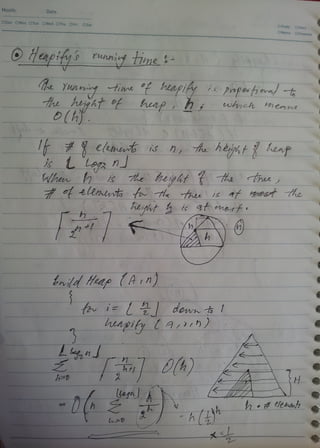 Month:
Date:
Heapify's running time :-
The running time of heapify is proportional to
the height of heap, h, which means
O(h).
If # of elements is n, the height of heap
is ⌊ log₂ n ⌋
When h is the height of the tree,
# of elements for the tree is at the
height h is at most.
⌈ n / 2^(h+1) ⌉
h
h
Build Heap (A, n)
{
for i = ⌊ n/2 ⌋ down to 1
heapify (A, i, n)
}
⌊ log₂ n ⌋ Σ h=0 ⌈ n / 2^(h+1) ⌉ O(h)
H
n # elements
= O( n Σ h=0 h / 2^h )
= h (1/2)^h
x = 1/2